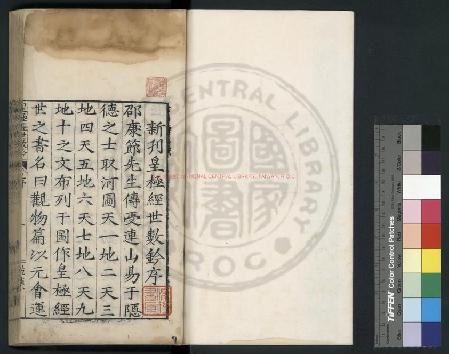 新刊皇極經世數鈐序
邵康節先生傳受連山易于隱
德之士取河圖天一地二天三
地四天五地六天七地八天九
地十之文布列于圖作皇極經
世之書名曰觀物篇以元會運
CENTRAL LIBRARY
ROC
國家圖書
TIFFEN Color Control Patches
Black
White